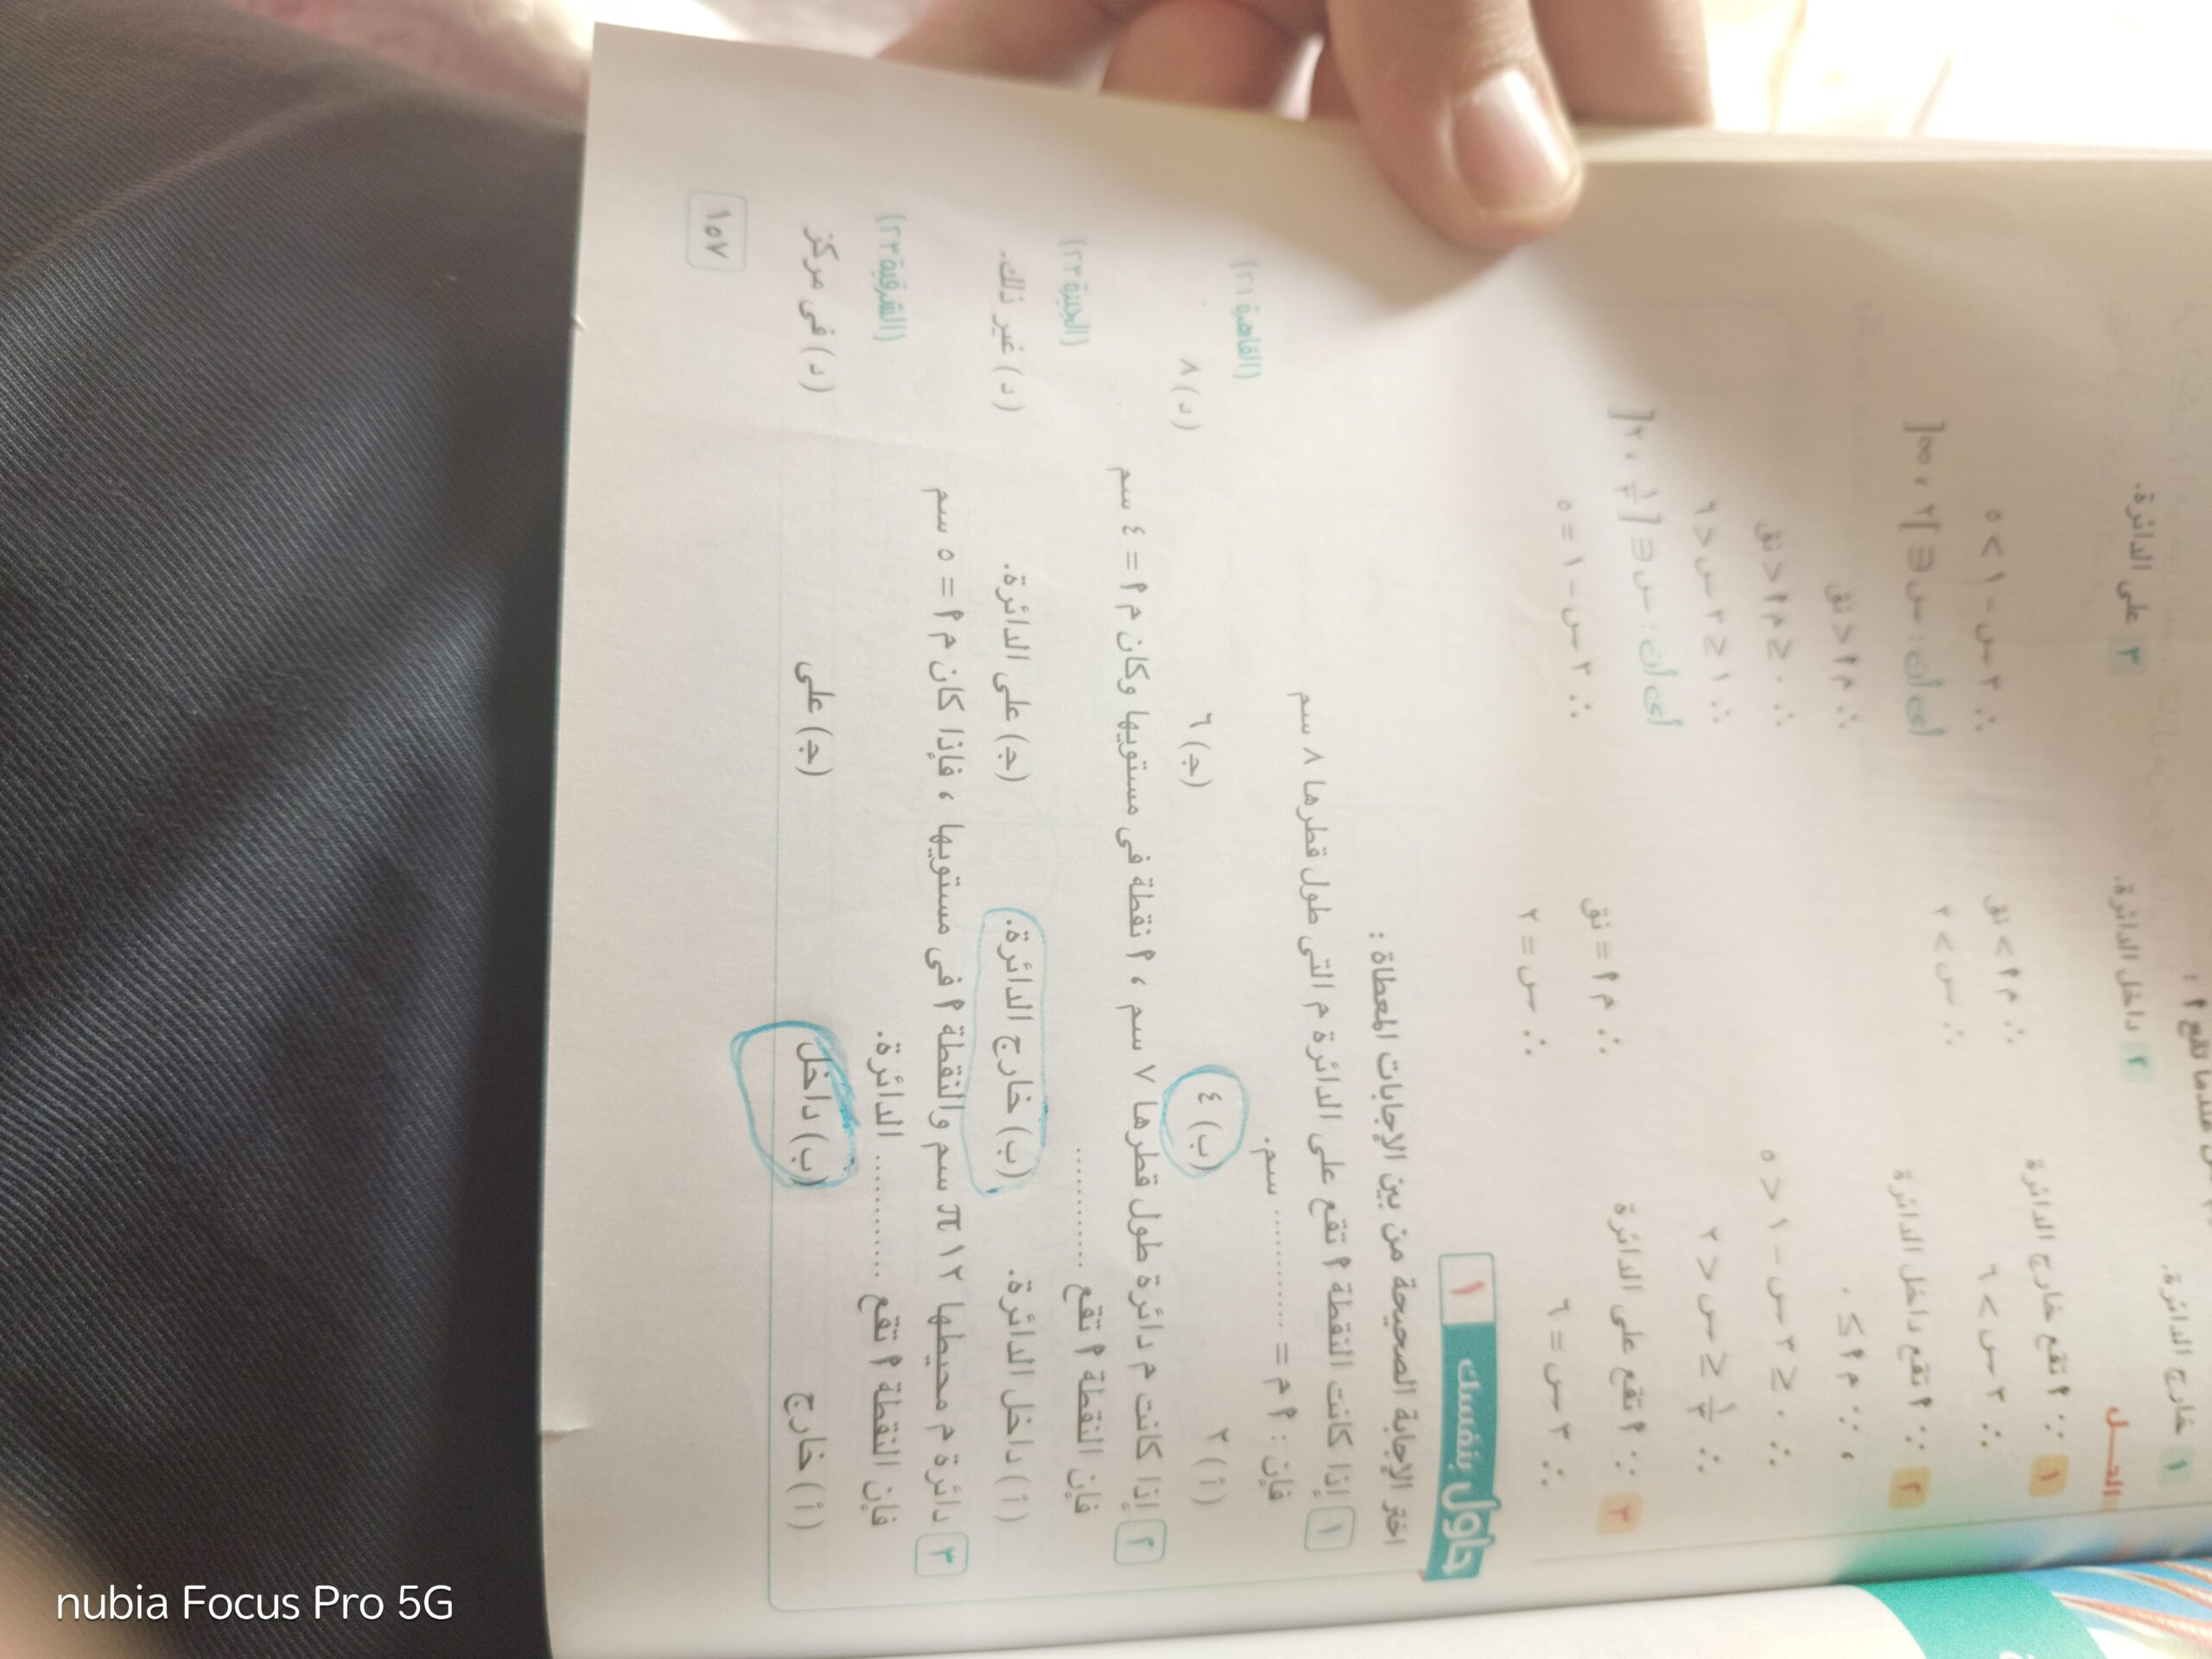 ١ خارج الدائرة. ٢ داخل الدائرة. ٣ على الدائرة.
الحـــل
١ ∵ ٢ تقع خارج الدائرة ∴ م ٢ > نق ∴ ٣ س - ١ > ٥
∴ ٣ س > ٦ ∴ س > ٢ أى أن : س ∈ ]٢ ، ∞[
٢ ∵ ٢ تقع داخل الدائرة ∴ م ٢ < نق
، ∵ م ٢ ≥ ٠ ∴ ٠ ≤ م ٢ < نق
∴ ٠ ≤ ٣ س - ١ < ٥ ∴ ١ ≤ ٣ س < ٦
∴ ١/٣ ≤ س < ٢ أى أن : س ∈ [١/٣ ، ٢[
٣ ∵ ٢ تقع على الدائرة ∴ م ٢ = نق ∴ ٣ س - ١ = ٥
∴ ٣ س = ٦ ∴ س = ٢
حاول بنفسك ١
اختر الإجابة الصحيحة من بين الإجابات المعطاة :
١ إذا كانت النقطة ٢ تقع على الدائرة م التى طول قطرها ٨ سم
فإن : م ٢ = ............ سم. (القاهرة ٢١)
(أ) ٢ (ب) ٤ (ج) ٦ (د) ٨
٢ إذا كانت م دائرة طول قطرها ٧ سم ، ٢ نقطة فى مستويها وكان م ٢ = ٤ سم
فإن النقطة ٢ تقع ............ (الجيزة ٢٣)
(أ) داخل الدائرة. (ب) خارج الدائرة. (ج) على الدائرة. (د) غير ذلك.
٣ دائرة م محيطها ١٢ π سم والنقطة ٢ فى مستويها ، فإذا كان م ٢ = ٥ سم
فإن النقطة ٢ تقع ............ الدائرة. (الشرقية ٢٣)
(أ) خارج (ب) داخل (ج) على (د) فى مركز
١٥٧
nubia Focus Pro 5G